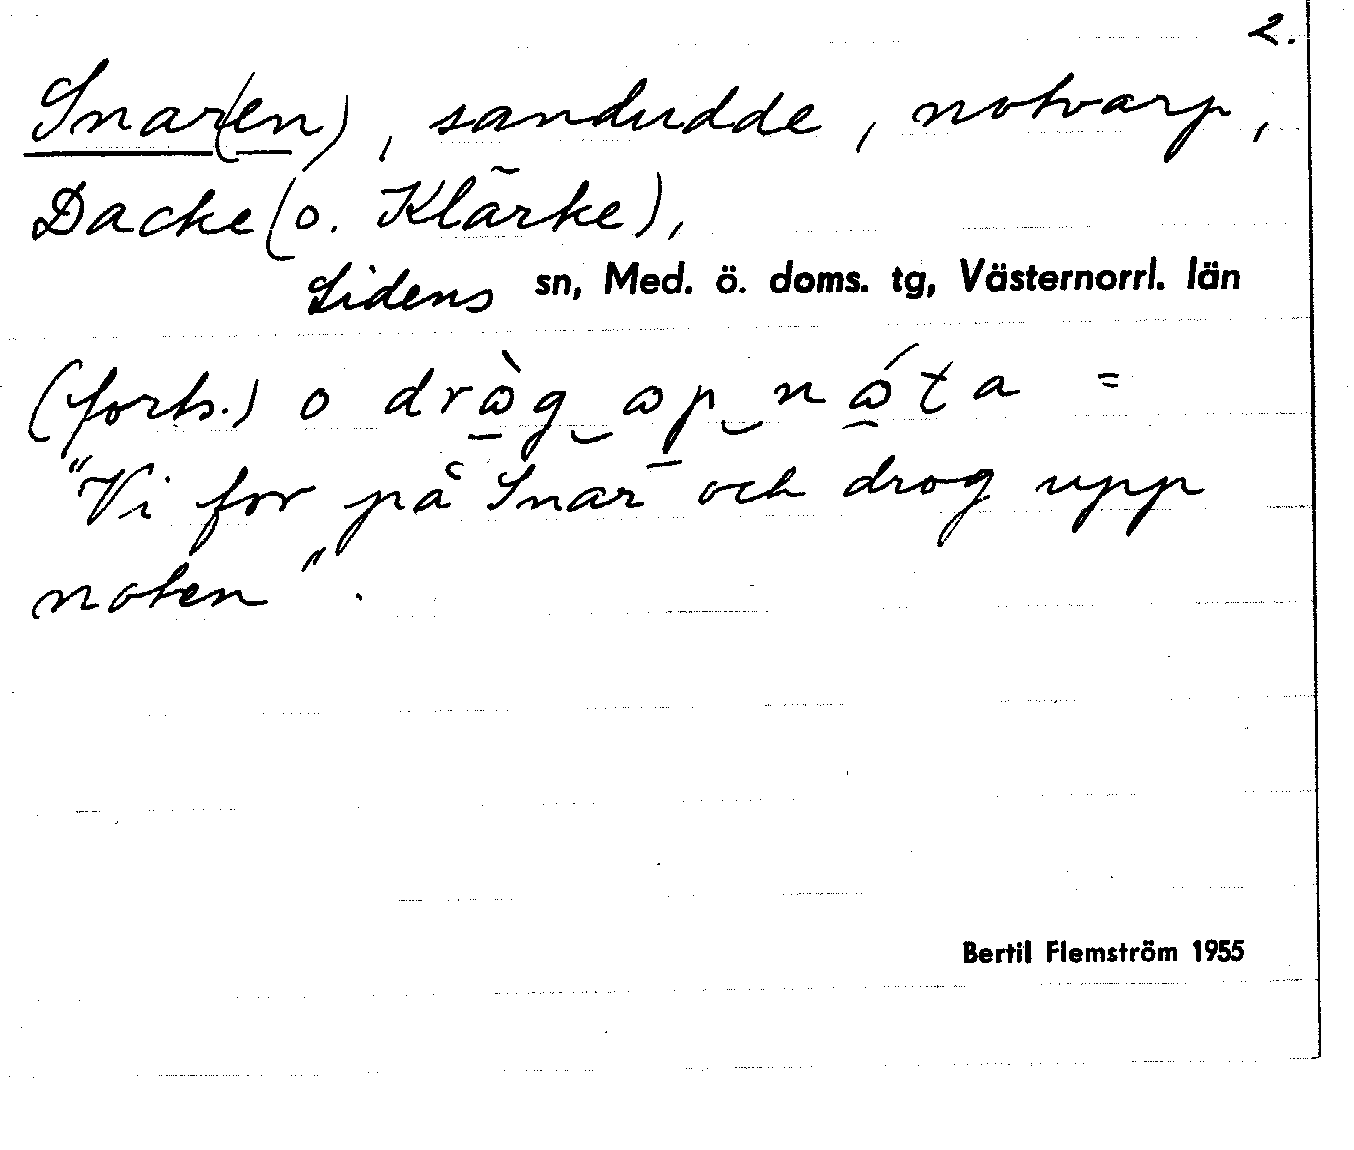 2.
Snar(en), sandudde, notvarp,
Dacke (o. Klärke),
Lidens sn, Med. ö. doms. tg, Västernorrl. län
(forts.) o
"Vi for på Snar och drog upp
noten".
Bertil Flemström 1955